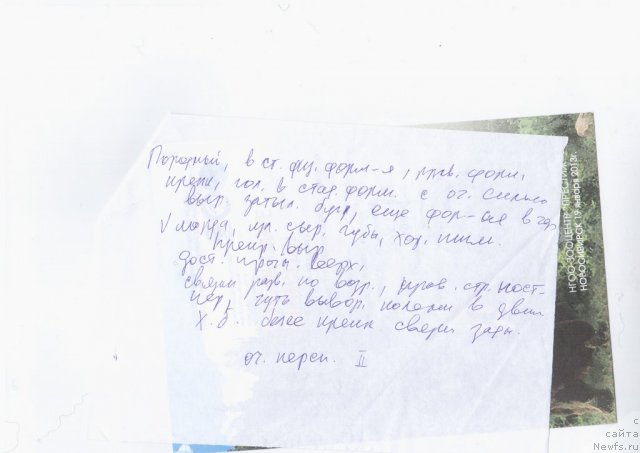 Породный, в ст. физ. форм-я, прав. форм,
крепк, гол. в стад. форм. с оч. сильно
выр. затыл. бугр, еще фор-ся в чер
V морда, сыр. губы, хор. пигм.
крепк. выр
дост. верх,
связки разв. по возр., прав. стр. кост-
пер, чуть вывор. в движ
х. б. более крепк связки зады.
оч. персп. II
НГОО-ЗООЦЕНТР
НОВОСИБИРСК 19 января 2013г.
с
сайта
Newfs.ru